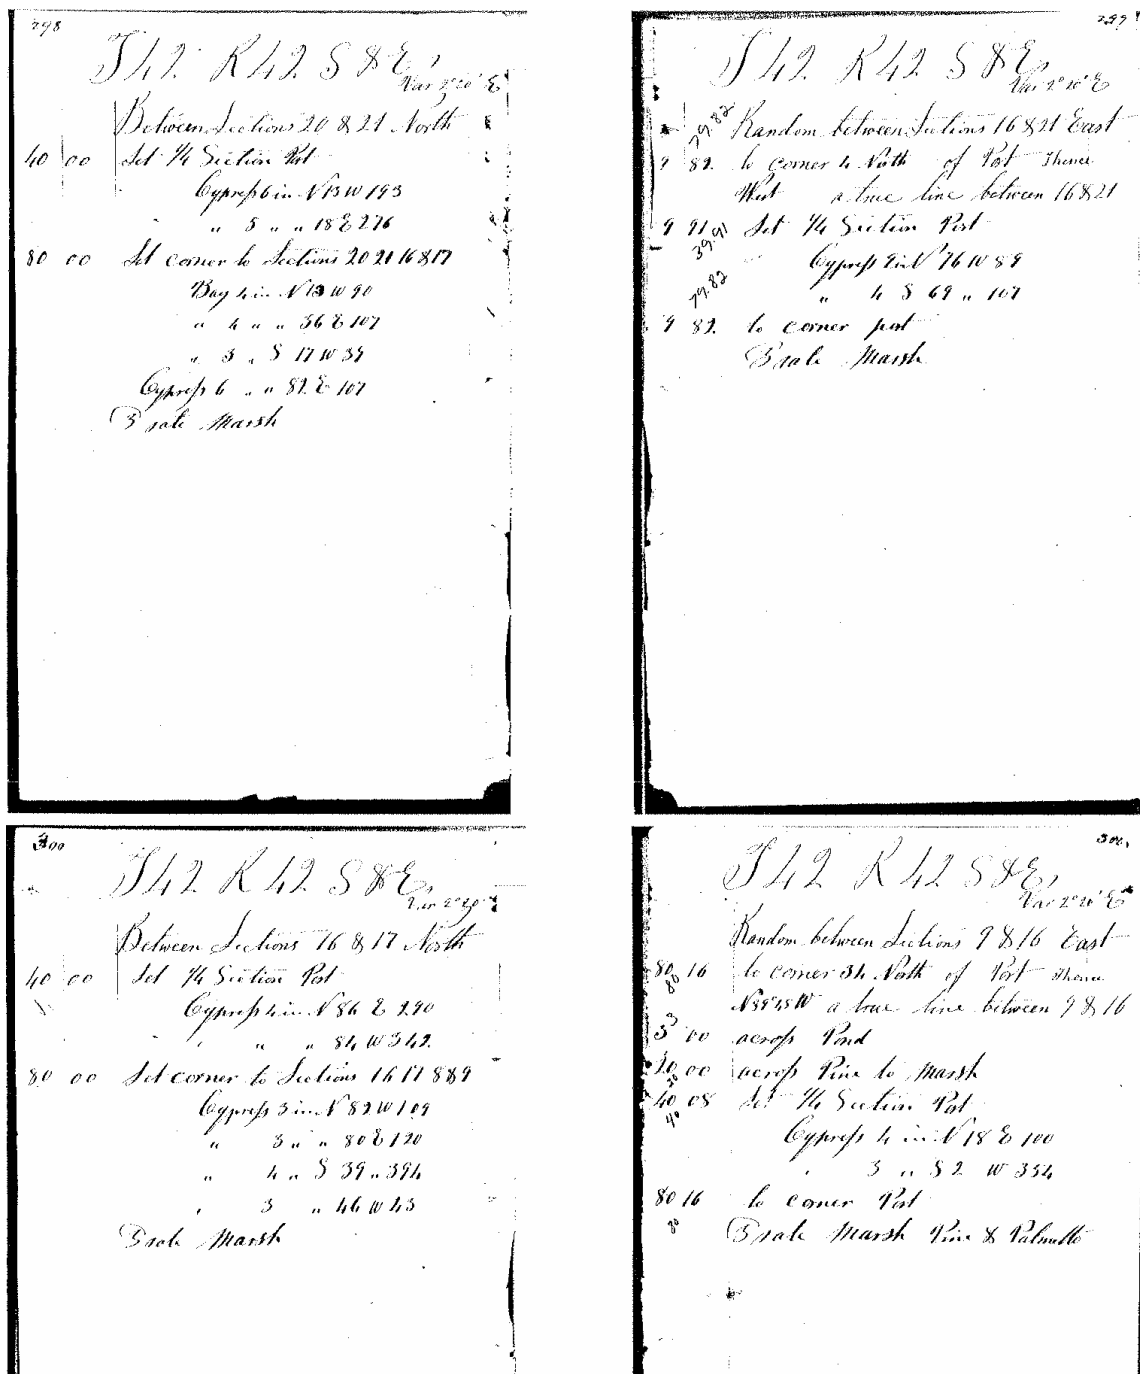 298
T 42 R 42 S & E,
Var 2° 20' E
Between Sections 20 & 21 North
40 00 Set 1/4 Section Post
Cypress 6 in N 13 W 193
" 5 " " 18 E 276
80 00 Set corner to Sections 20 21 16 & 17
Bay 4 in N 13 W 90
" 4 " " 36 E 107
" 3 " S 17 W 39
Cypress 6 " " 82 E 107
3 rate Marsh
299
T 42 R 42 S & E,
Var 2° 20' E
79.82 Random between Sections 16 & 21 East
82 to corner 4 North of Post Thence
West a true line between 16 & 21
9 91 Set 1/4 Section Post
39.91
Cypress 2 in N 76 W 89
" 4 S 69 " 107
79.82
9 82 to corner post
3 rate Marsh
300
T 42 R 42 S & E,
Var 2° 20'
Between Sections 16 & 17 North
40 00 Set 1/4 Section Post
Cypress 4 in N 86 E 290
" " 84 W 342
80 00 Set corner to Sections 16 17 8 & 9
Cypress 3 in N 82 W 109
" 3 " " 80 E 120
" 4 " S 39 " 394
" 3 " 46 W 43
3 rate Marsh
T 42 R 42 S & E,
Var 2° 20' E
Random between Sections 9 & 16 East
80 16 to corner 34 North of Post Thence
80
N 89° 45 W a true line between 9 & 16
3 00 across Pond
20 00 across Pine to Marsh
20
40 08 Set 1/4 Section Post
40
Cypress 4 in N 18 E 100
3 " S 2 W 354
80 16 to corner Post
80
3 rate Marsh Pine & Palmetto